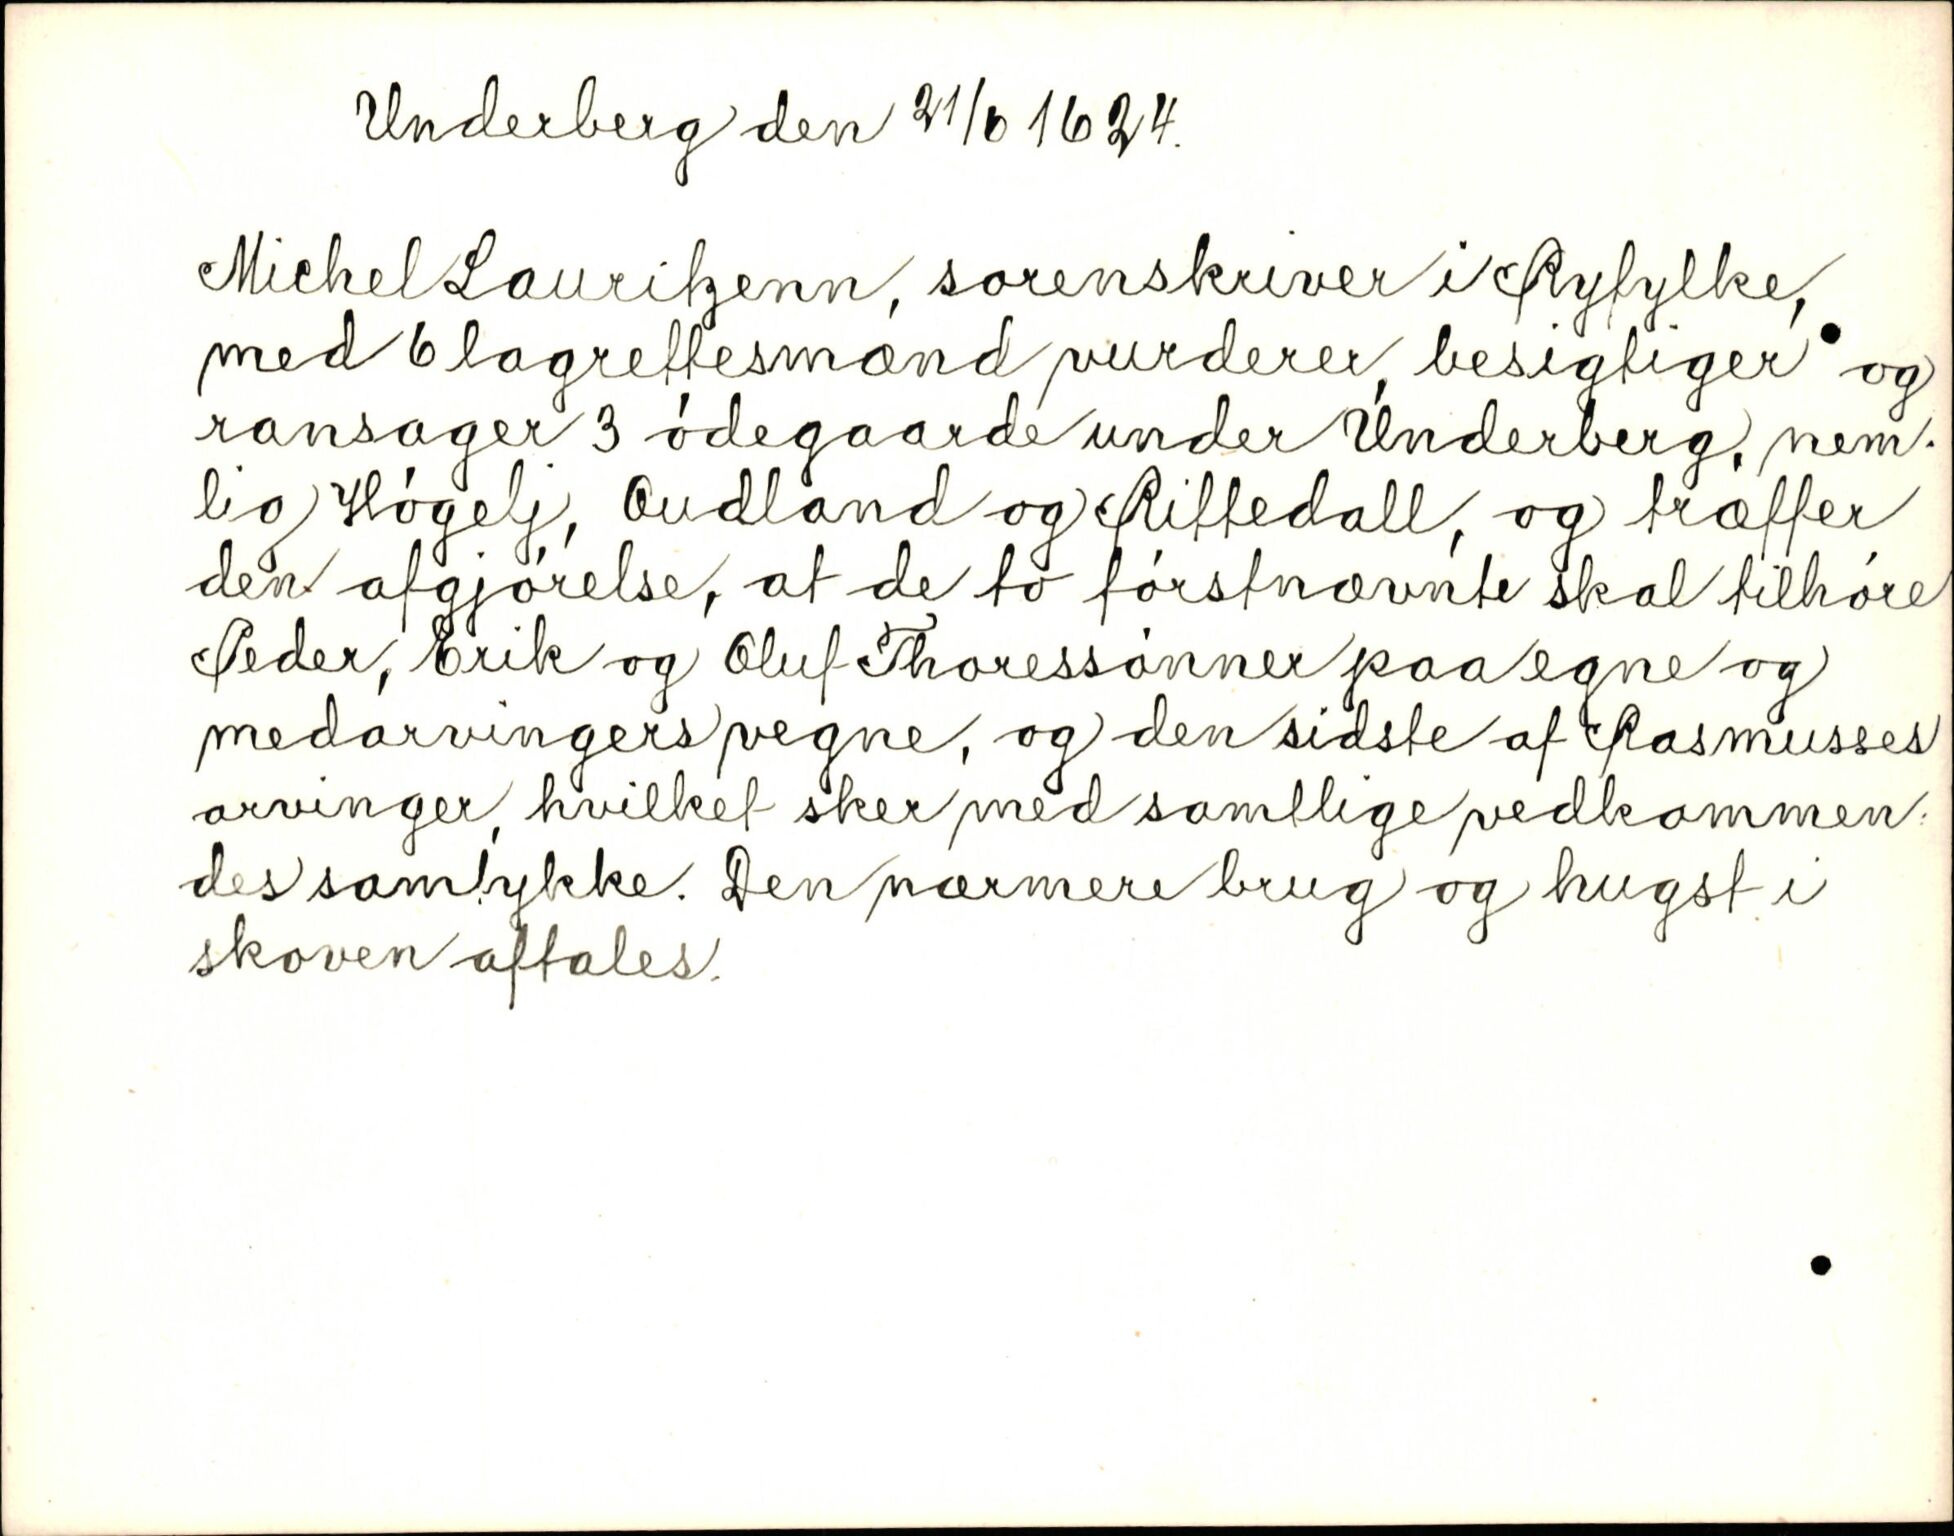 Underberg den 21/6 1624.
Michel Lauritzenn, sorenskriver i Ryfylke,
med 6 lagrettesmænd vurderer, besigtiger og
ransager 3 ödegaarde under Underberg, nem-
lig Högelj, Oudland og Rittedall, og træffer
den afgjörelse, at de to förstnævnte skal tilhöre
Peder, Erik og Oluf Thoressönner paa egne og
medarvingers vegne, og den sidste af Rasmusses
arvinger, hvilket sker med samtlige vedkommen-
des samtykke. Den nærmere brug og hugst i
skoven aftales.